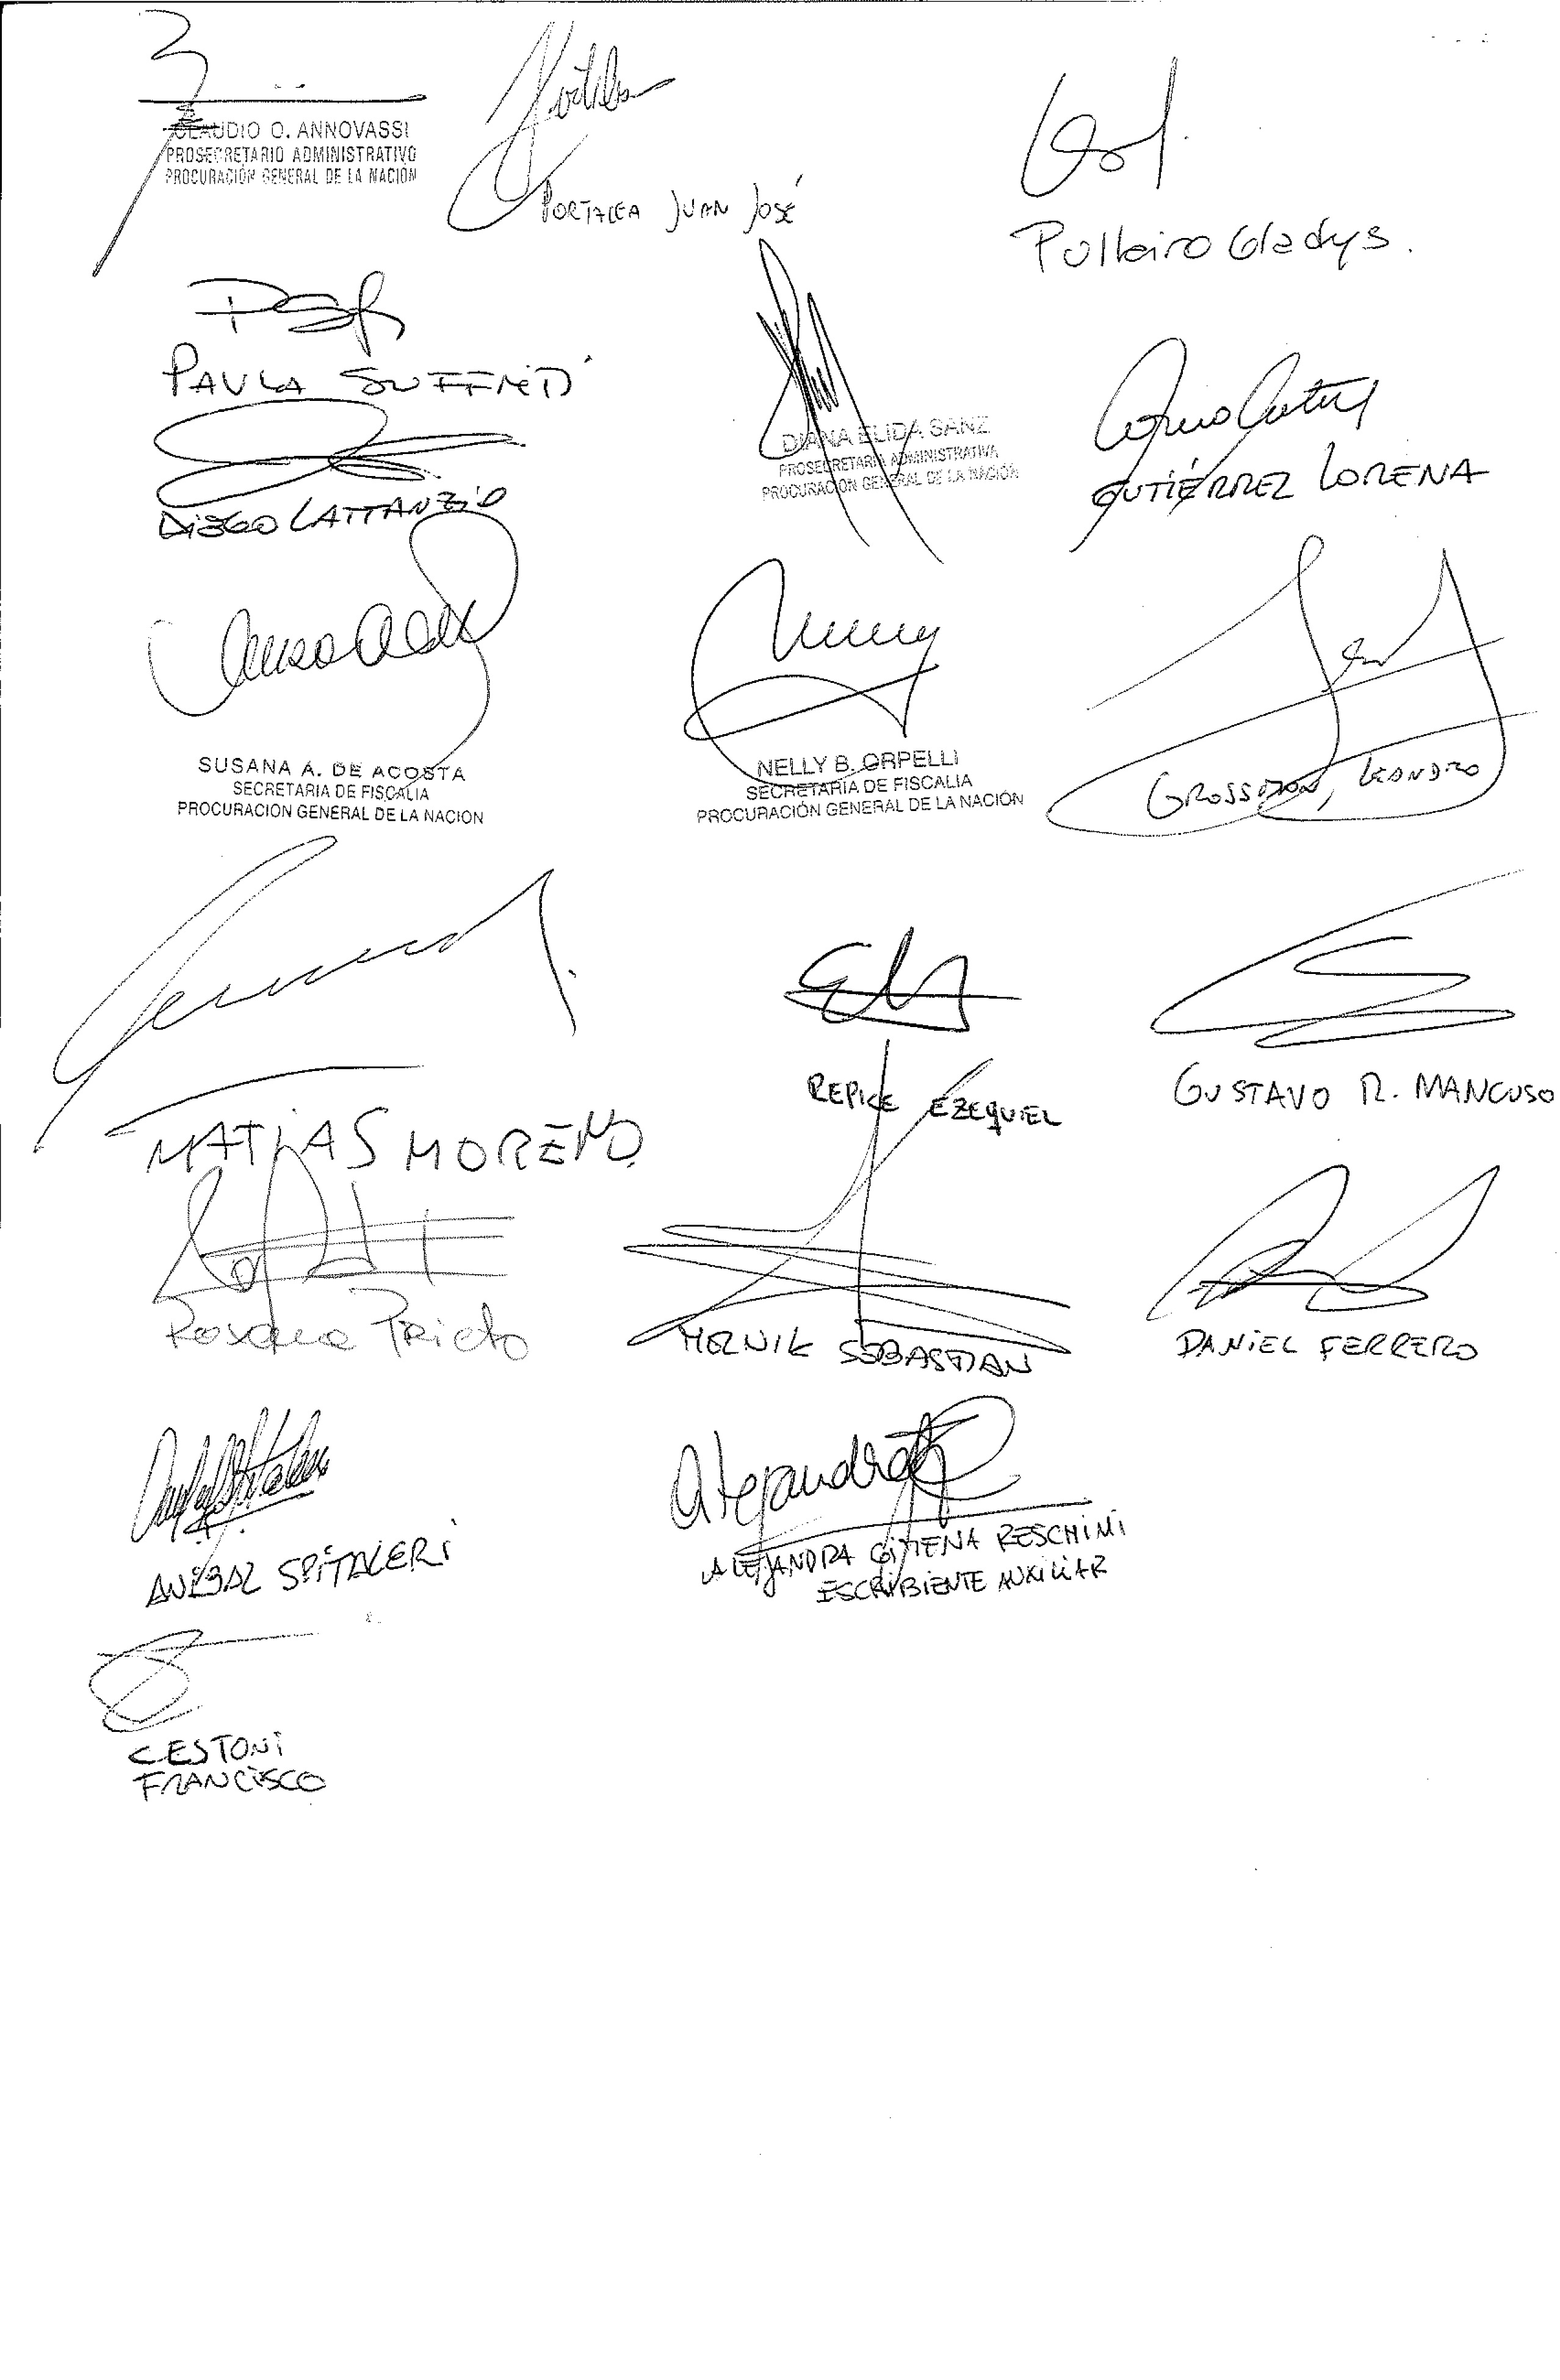 CLAUDIO O. ANNOVASSI
PROSECRETARIO ADMINISTRATIVO
PROCURACIÓN GENERAL DE LA NACION
JUAN JOSÉ
Pulleiro Gladys.
PAULA
DIEGO LATTANZIO
DIANA ELIDA SANZ
PROSECRETARIA ADMINISTRATIVA
PROCURACION GENERAL DE LA NACIÓN
GUTIÉRREZ LORENA
SUSANA A. DE ACOSTA
SECRETARIA DE FISCALIA
PROCURACION GENERAL DE LA NACION
NELLY B. ORPELLI
SECRETARÍA DE FISCALIA
PROCURACIÓN GENERAL DE LA NACIÓN
GROSSMAN, LEANDRO
MATIAS MORENO
REPICE EZEQUIEL
GUSTAVO R. MANCUSO
Roxana Prieto
SEBASTIAN
DANIEL FERRERO
ANIBAL SPITALERI
Alejandra
ALEJANDRA GIMENA RESCHINI
ESCRIBIENTE AUXILIAR
CESTONI
FRANCISCO